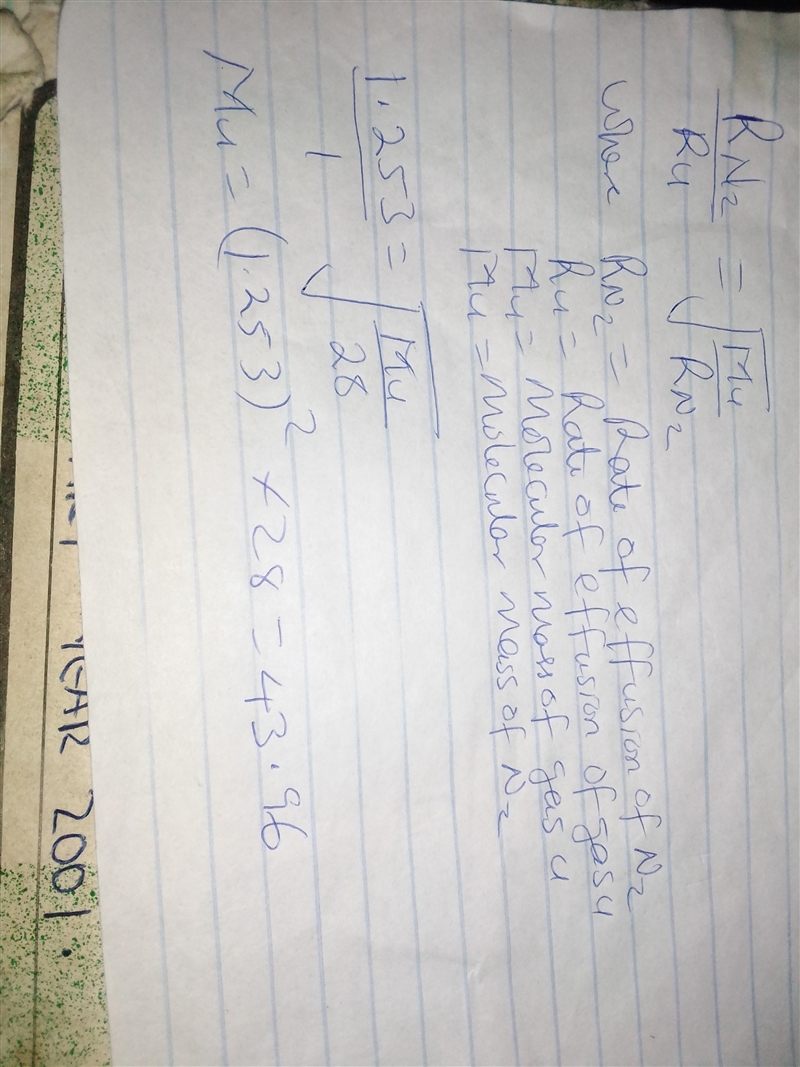 RN₂/Ru = √(Mu/RN₂)
where RN₂ = Rate of effusion of N₂
Ru = Rate of effusion of gas u
Mu = Molecular mass of gas u
Mu = Molecular mass of N₂
1.253/1 = √(Mu/28)
Mu = (1.253)² × 28 = 43.96
YEAR 2001.